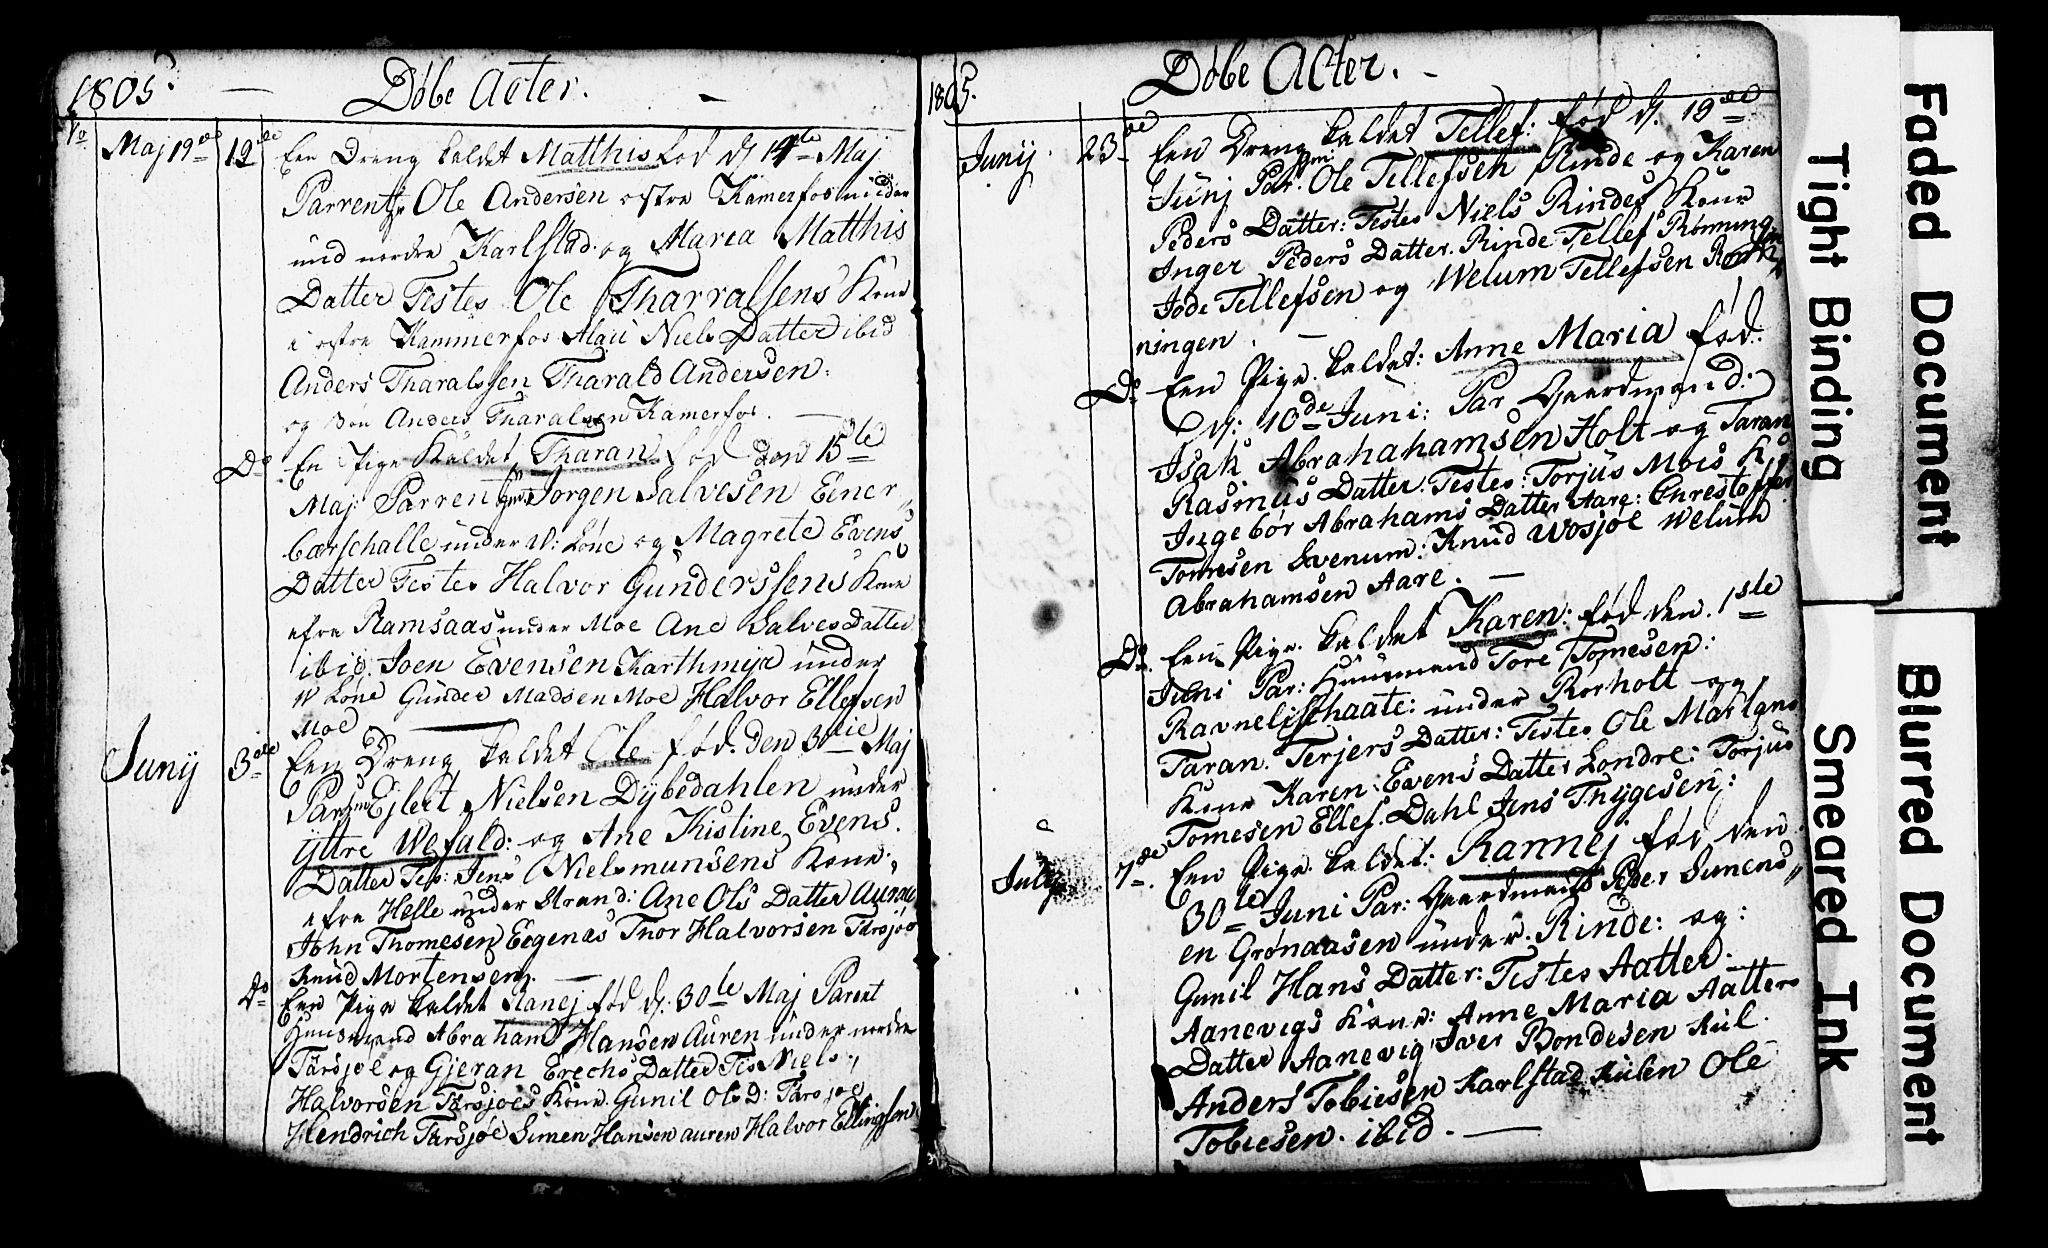 1805.
Døbe Acter.
No
Maj 19de 19de Een Dreng kaldet Matthis fød d. 14te Maj
Parrentr Ole Andersen østre Kamerfos
und nordre Karlstad og Maria Matthis
Datter Testes Ole Tharralsens Kone
i østre Kammerfos Niels Datter ibid
Anders Tharalssen Tharald Andersen:
og Anders Tharalsen Kamerfos.
Do En Pige Kaldet Tharan fød den 15de
Maj Parrent Jorgen Salvesen Einer
bærschalle under W: Løne og Magrete Evens
Datter Testes Halvor Gunderssens Kone
Ramsaas under Moe Ane Salves Datter
ibid. Joen Evensen Karthmyr under
W Løne Gunder Madsen Moe Halvor Ellefsen
Moe
Junij 3de Een Dreng kaldet Ole fød den 30te Maj
Par Ejlert Nielsen Dybedahlen under
Yttre Wefald: og Ane Kistine Evens
Datter Tes: Jens Nielsmunsens Kone
Helle under Strand: Ane Ols Datter
John Thomesen Eegenes Tnor Halvorsen Tarsjøe
Knud Mortensen.
Do Een Pige kaldet Ranej fød d. 30te Maj Parent
Huusmand Abraham Hansen Auren under nordre
Tarsjøe og Gjeran Erechs Datter Tes Niels
Halvorsen Tarsjoes Kone Gunil Ols D: Tarsjoe
Hendrich Tarsjoe Simen Hansen auren Halvor Ellingsen
1805.
Døbe Acter.
Junij 23de Een Dreng kaldet Tellef: fød d. 19de
Junj Par. Ole Tellefsen Rinde og Karen
Peders Datter: Testes Niels Rindes Kone
Inger Peders Datter Rinde Tellef Rønning
Jode Tellefsen og Welum Tellefsen
ningen.
Do Een Pige kaldet: Anne Maria fød:
d: 10de Juni: Par Gaardmand:
Isak Abrahahamsen Holt og Taran
Rasmus Datter. Testes: Torjus Moes K
Ingebor Abrahams Datter Aare: Chrestoffer
Tomesen Svenum: Knud Wosjoe Welum
Abrahamsen Aare.
Do. Een Pige kaldet Karen: fød den 1ste
Juni Par: Huusmand Tore Tomesen:
Ravnelischaate: under Rorholt og
Taran Terjers Datter: Testes Ole Martans
Kone Karen: Evens Datter Londre: Torjus
Tomesen Ellef Dahl Jens Thygesen:
July 7de. Een Pige kaldet: Rannej fød den
30te Juni Par: Gaardmand Peder Simens
en Grønaasen under Rinde: og:
Gunil Hans Datter: Testes Aatter
Aanevigs Kone: Anne Maria Aatters
Datter Aanevig Iver Bondesen Kil
Anders Tobiesen Karlstad Kilen Ole
Tobiesen. ibid.
Faded Document
Tight Binding
Blurred Document
Smeared Ink